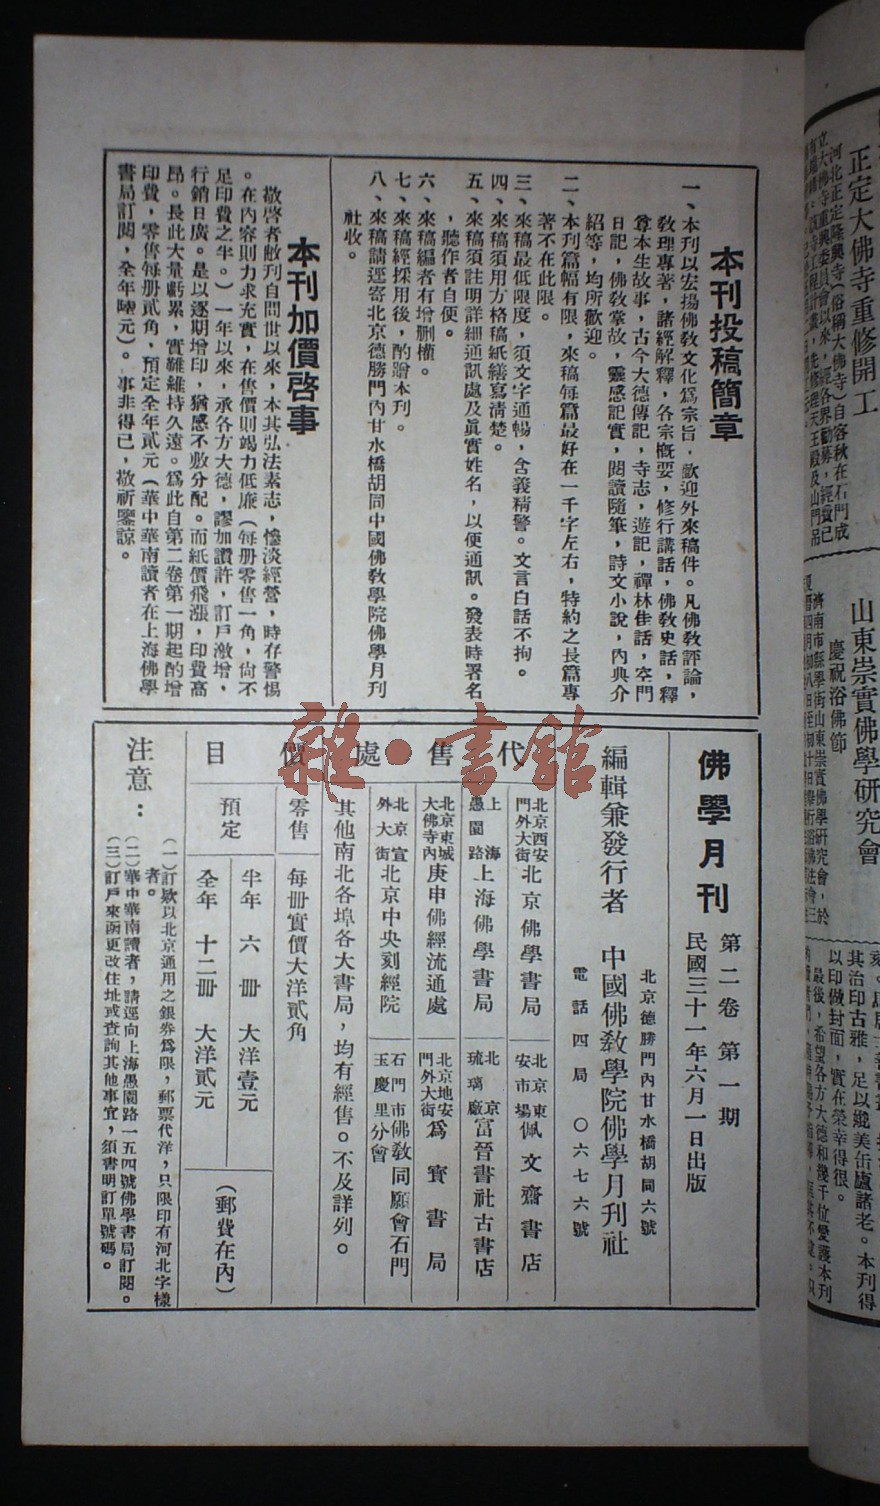 本刊投稿簡章
一、本刊以宏揚佛敎文化爲宗旨，歡迎外來稿件。凡佛敎評論，
敎理專著，諸經解釋，各宗槪要，修行講話，佛敎史話，釋
尊本生故事，古今大德傳記，寺志，遊記，禪林佳話，空門
日記，佛敎掌故，靈感記實，閱讀隨筆，詩文小說，內典介
紹等，均所歡迎。
二、本刊篇幅有限，來稿每篇最好在一千字左右，特約之長篇專
著不在此限。
三、來稿最低限度，須文字通暢，含義精警。文言白話不拘。
四、來稿須用方格稿紙繕寫清楚。
五、來稿須註明詳細通訊處及眞實姓名，以便通訊。發表時署名
，聽作者自便。
六、來稿編者有增删權。
七、來稿經採用後，酌贈本刊。
八、來稿請逕寄北京德勝門內甘水橋胡同中國佛敎學院佛學月刊
社收。
本刊加價啓事
敬啓者敝刊自問世以來，本其弘法素志，慘淡經營，時存警惕
。在內容則力求充實，在售價則竭力低廉（每册零售一角，尙不
足印費之半。）一年以來，承各方大德，謬加讚許，訂戶激增，
行銷日廣。是以逐期增印，猶感不敷分配。而紙價飛漲，印費高
昂。長此大量虧累，實難維持久遠。爲此自第二卷第一期起酌增
印費，零售每册貳角，預定全年貳元（華中華南讀者在上海佛學
書局訂閱，全年陸元）。事非得已，敬祈鑒諒。
佛學月刊 第二卷 第一期
民國三十一年六月一日出版
編輯兼發行者 中國佛敎學院佛學月刊社
北京德勝門內甘水橋胡同六號
電話四局 〇六七六號
代售處
北京西安門外大街 北京佛學書局
北京東安市場 佩文齋書店
上海愚園路 上海佛學書局
北京琉璃廠 富晉書社古書店
北京東城大佛寺內 庚申佛經流通處
北京地安門外大街 爲寶書局
北京宣外大街 北京中央刻經院
石門市玉慶里 佛敎同願會石門分會
其他南北各埠各大書局，均有經售。不及詳列。
價目
零售 每册實價大洋貳角
預定
半年 六册 大洋壹元
全年 十二册 大洋貳元
（郵費在內）
注意：
（一）訂欵以北京通用之銀券爲限，郵票代洋，只限印有河北字樣
者。
（二）華中華南讀者，請逕向上海愚園路一五四號佛學書局訂閱。
（三）訂戶來函更改住址或查詢其他事宜，須書明訂單號碼。
正定大佛寺重修開工
河北正定隆興寺（俗稱大佛寺）自客秋在石門成
立大佛寺重興委員會以來，經各界勸募，經費已
山東崇實佛學研究會
慶祝浴佛節
濟南市縣學街山東崇實佛學研究會，於
其治印古雅，足以媲美缶廬諸老。本刊得
以印做封面，實在榮幸得很。
最後，希望各方大德和幾千位愛護本刊
雜·書館